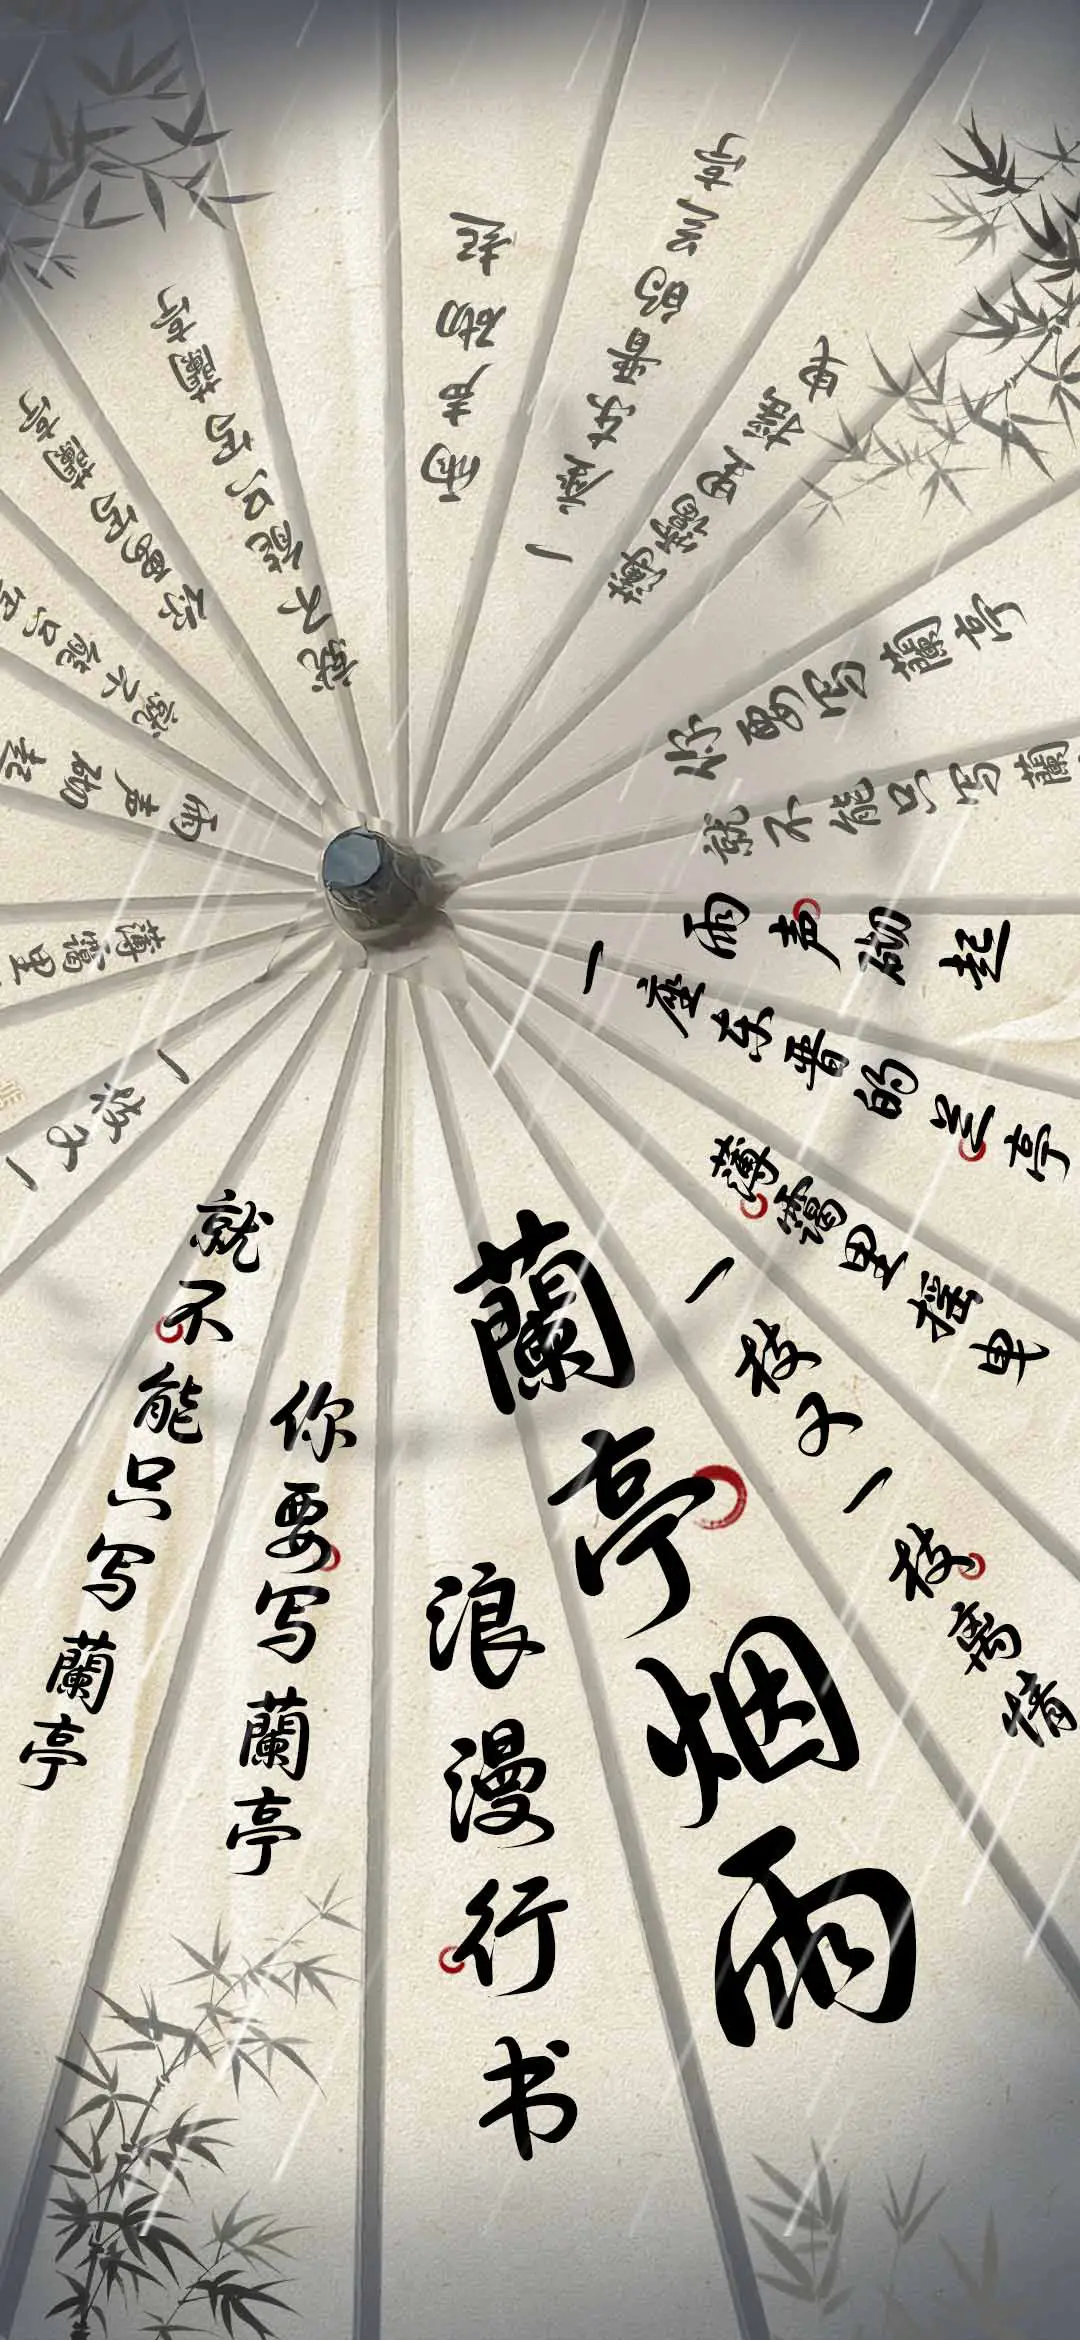 雨声砌起
一座东晋的兰亭
薄霭里摇曳
你要写蘭亭
就不能只写蘭
就不能只写蘭亭
你要写蘭亭
就不能只写
雨声砌起
薄霭里
一枝又一
雨声砌起
一座东晋的兰亭
薄霭里摇曳
一枝又一枝离情
蘭亭烟雨
浪漫行书
你要写蘭亭
就不能只写蘭亭